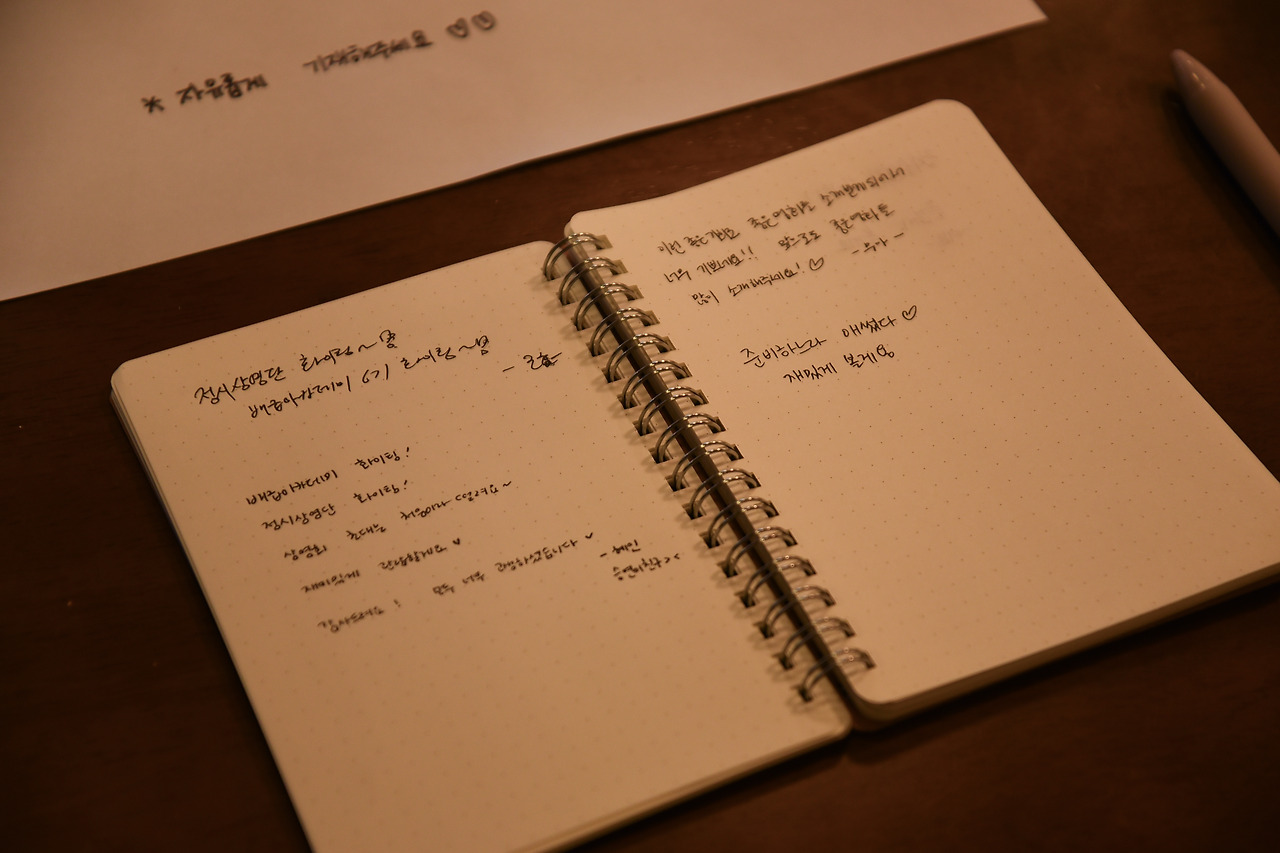 * 자유롭게 기재해주세요 ♡♡
정시상영단 화이팅~
배급아카데미 6기 화이팅~
배급아카데미 화이팅!
정시상영단 화이팅!
상영회 초대는 처음이라 떨려요~
재미있게 관람할게요 ♥
감사드려요! 모두 너무 고생하셨습니다 ♥
- 혜인
승연이친구>.<
이런 좋은 기회로 좋은 영화를 소개받게되어
너무 기쁘네요!! 앞으로도 좋은영화들
많이 소개해주세요! ♡
준비하느라 애썼다 ♡
재밌게 볼게용